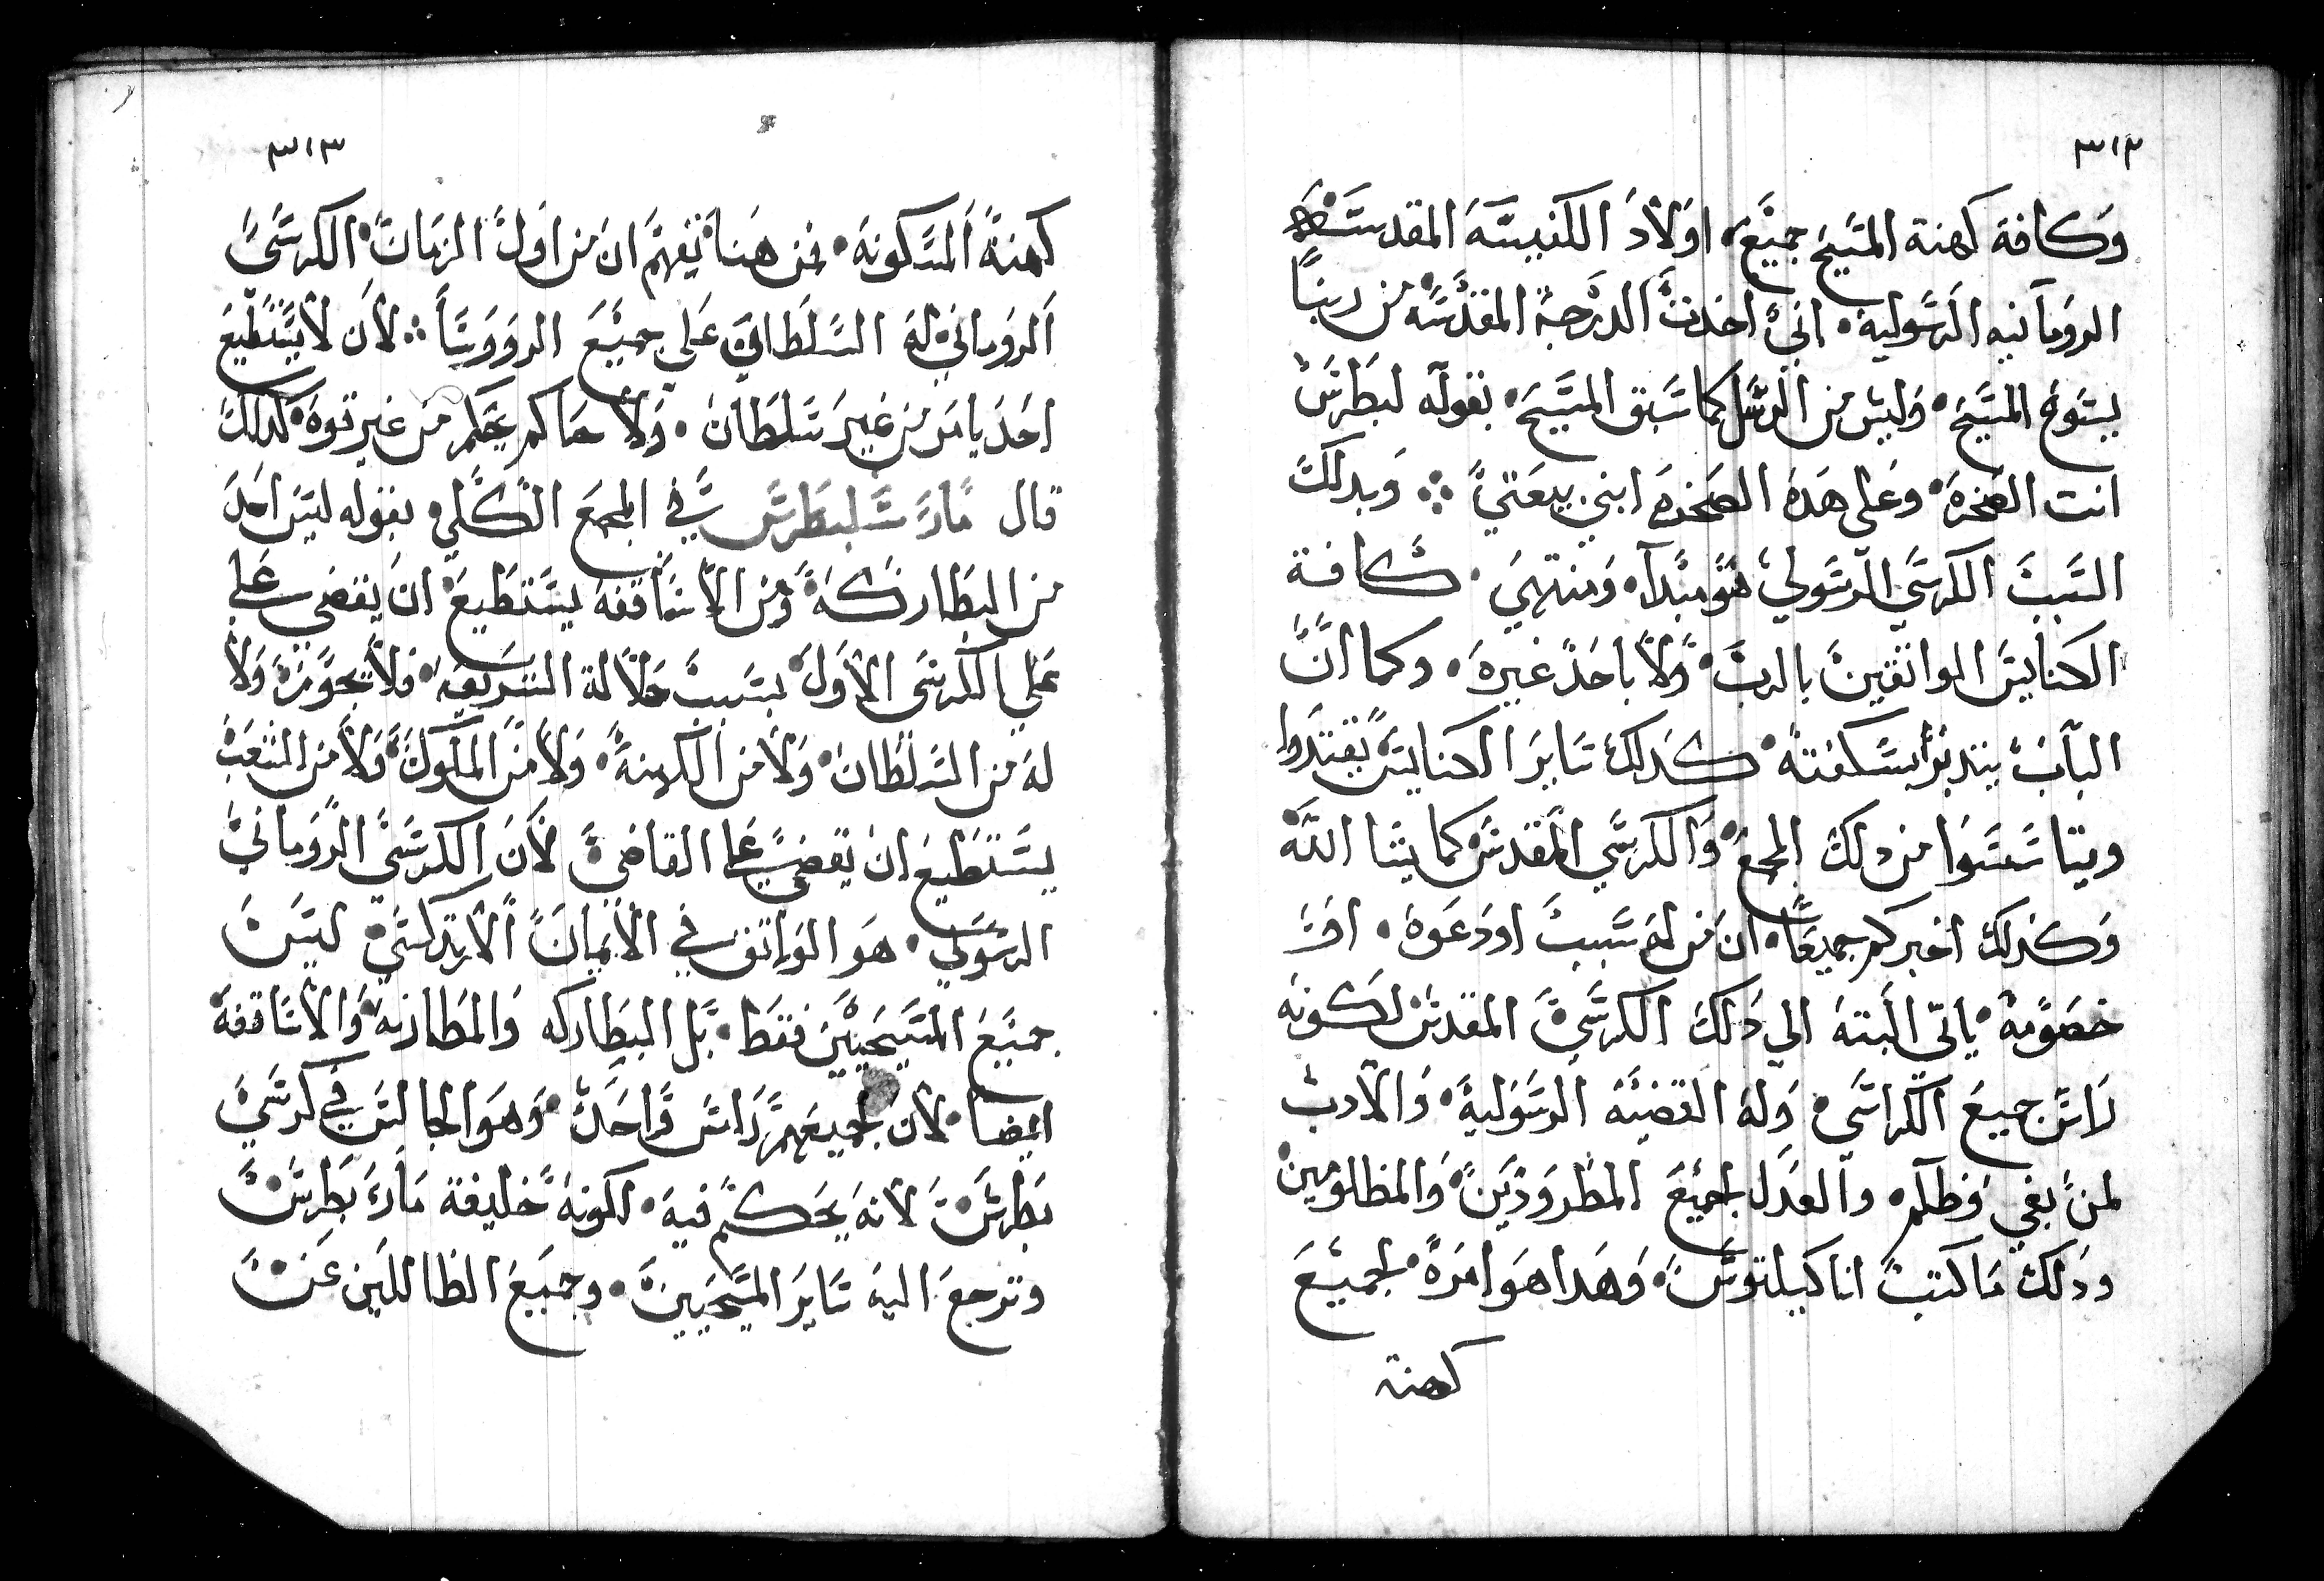 ٣١٢
وكافة كهنة المسيح جميع، اولاد الكنيسة المقدسة
الرومانيه الرسوليه. اني اخذت الدرجة المقدسة من ربنا
يسوع المسيح. وليس من الرسل كما سبق المسيح. بقوله لبطرس
انت الصخرة. وعلى هذه الصخرة ابني بيعتي ⁘ وبدلك
السبب الكرسي الرسولي هو مبدا. ومنتهي. كافة
الكنايس الواثقين بالرب. ولا باحد غيره. وكما ان
الباب بيندبر بسكفته. كدلك ساير الكنايس يقتدوا
ويتاسسوا من دلك المجمع. والكرسي المقدس كما يشا الله
وكدلك اخبركم جميعا. ان من له سبب او دعوه. او
خصومة. ياتي البته الي دلك الكرسي المقدس لكونه
راس جميع الكراسي. وله القضيه الرسولية. والادب
لمن بغي وظلم. والعدل لجميع المطرودين. والمظلومين
ودلك ما كتبت انا كيلتوس. وهدا هو امره. لجميع
كهنة
٣١٣
كهنة المسكونه. فمن هنا نفهم ان من اول الزمان. الكرسي
الروماني له السلطان علي جميع الرووسا ⁖ لان لا يستطيع
احد يامر من غير سلطان. ولا حاكم يحكم من غير قوه. كدلك
قال مار سلبطرس في المجمع الكلي. بقوله ليس احد
من البطاركة ومن الاساقفه يستطيع ان يقضي علي
علي الكرسي الاول. بسبب جلالة الشريعه. فلا يجوز ولا
له من السلطان. ولا من الكهنة. ولا من الملوك. ولا من الشعب
يستطيع ان يقضي علي القاضي لان الكرسي الروماني
الرسولي. هو الواثق في الايمان الارتدكسي. ليس
جميع المسيحيين فقط. بل البطاركه والمطارنه. والاساقفه
ايضا. لان لجميعهم راس واحد. وهو الجالس في كرسي
بطرس. لانه يحكم فيه. لكونه خليفة مار بطرس.
وترجع اليه ساير المسيحيين. وجميع الظاللين عن.